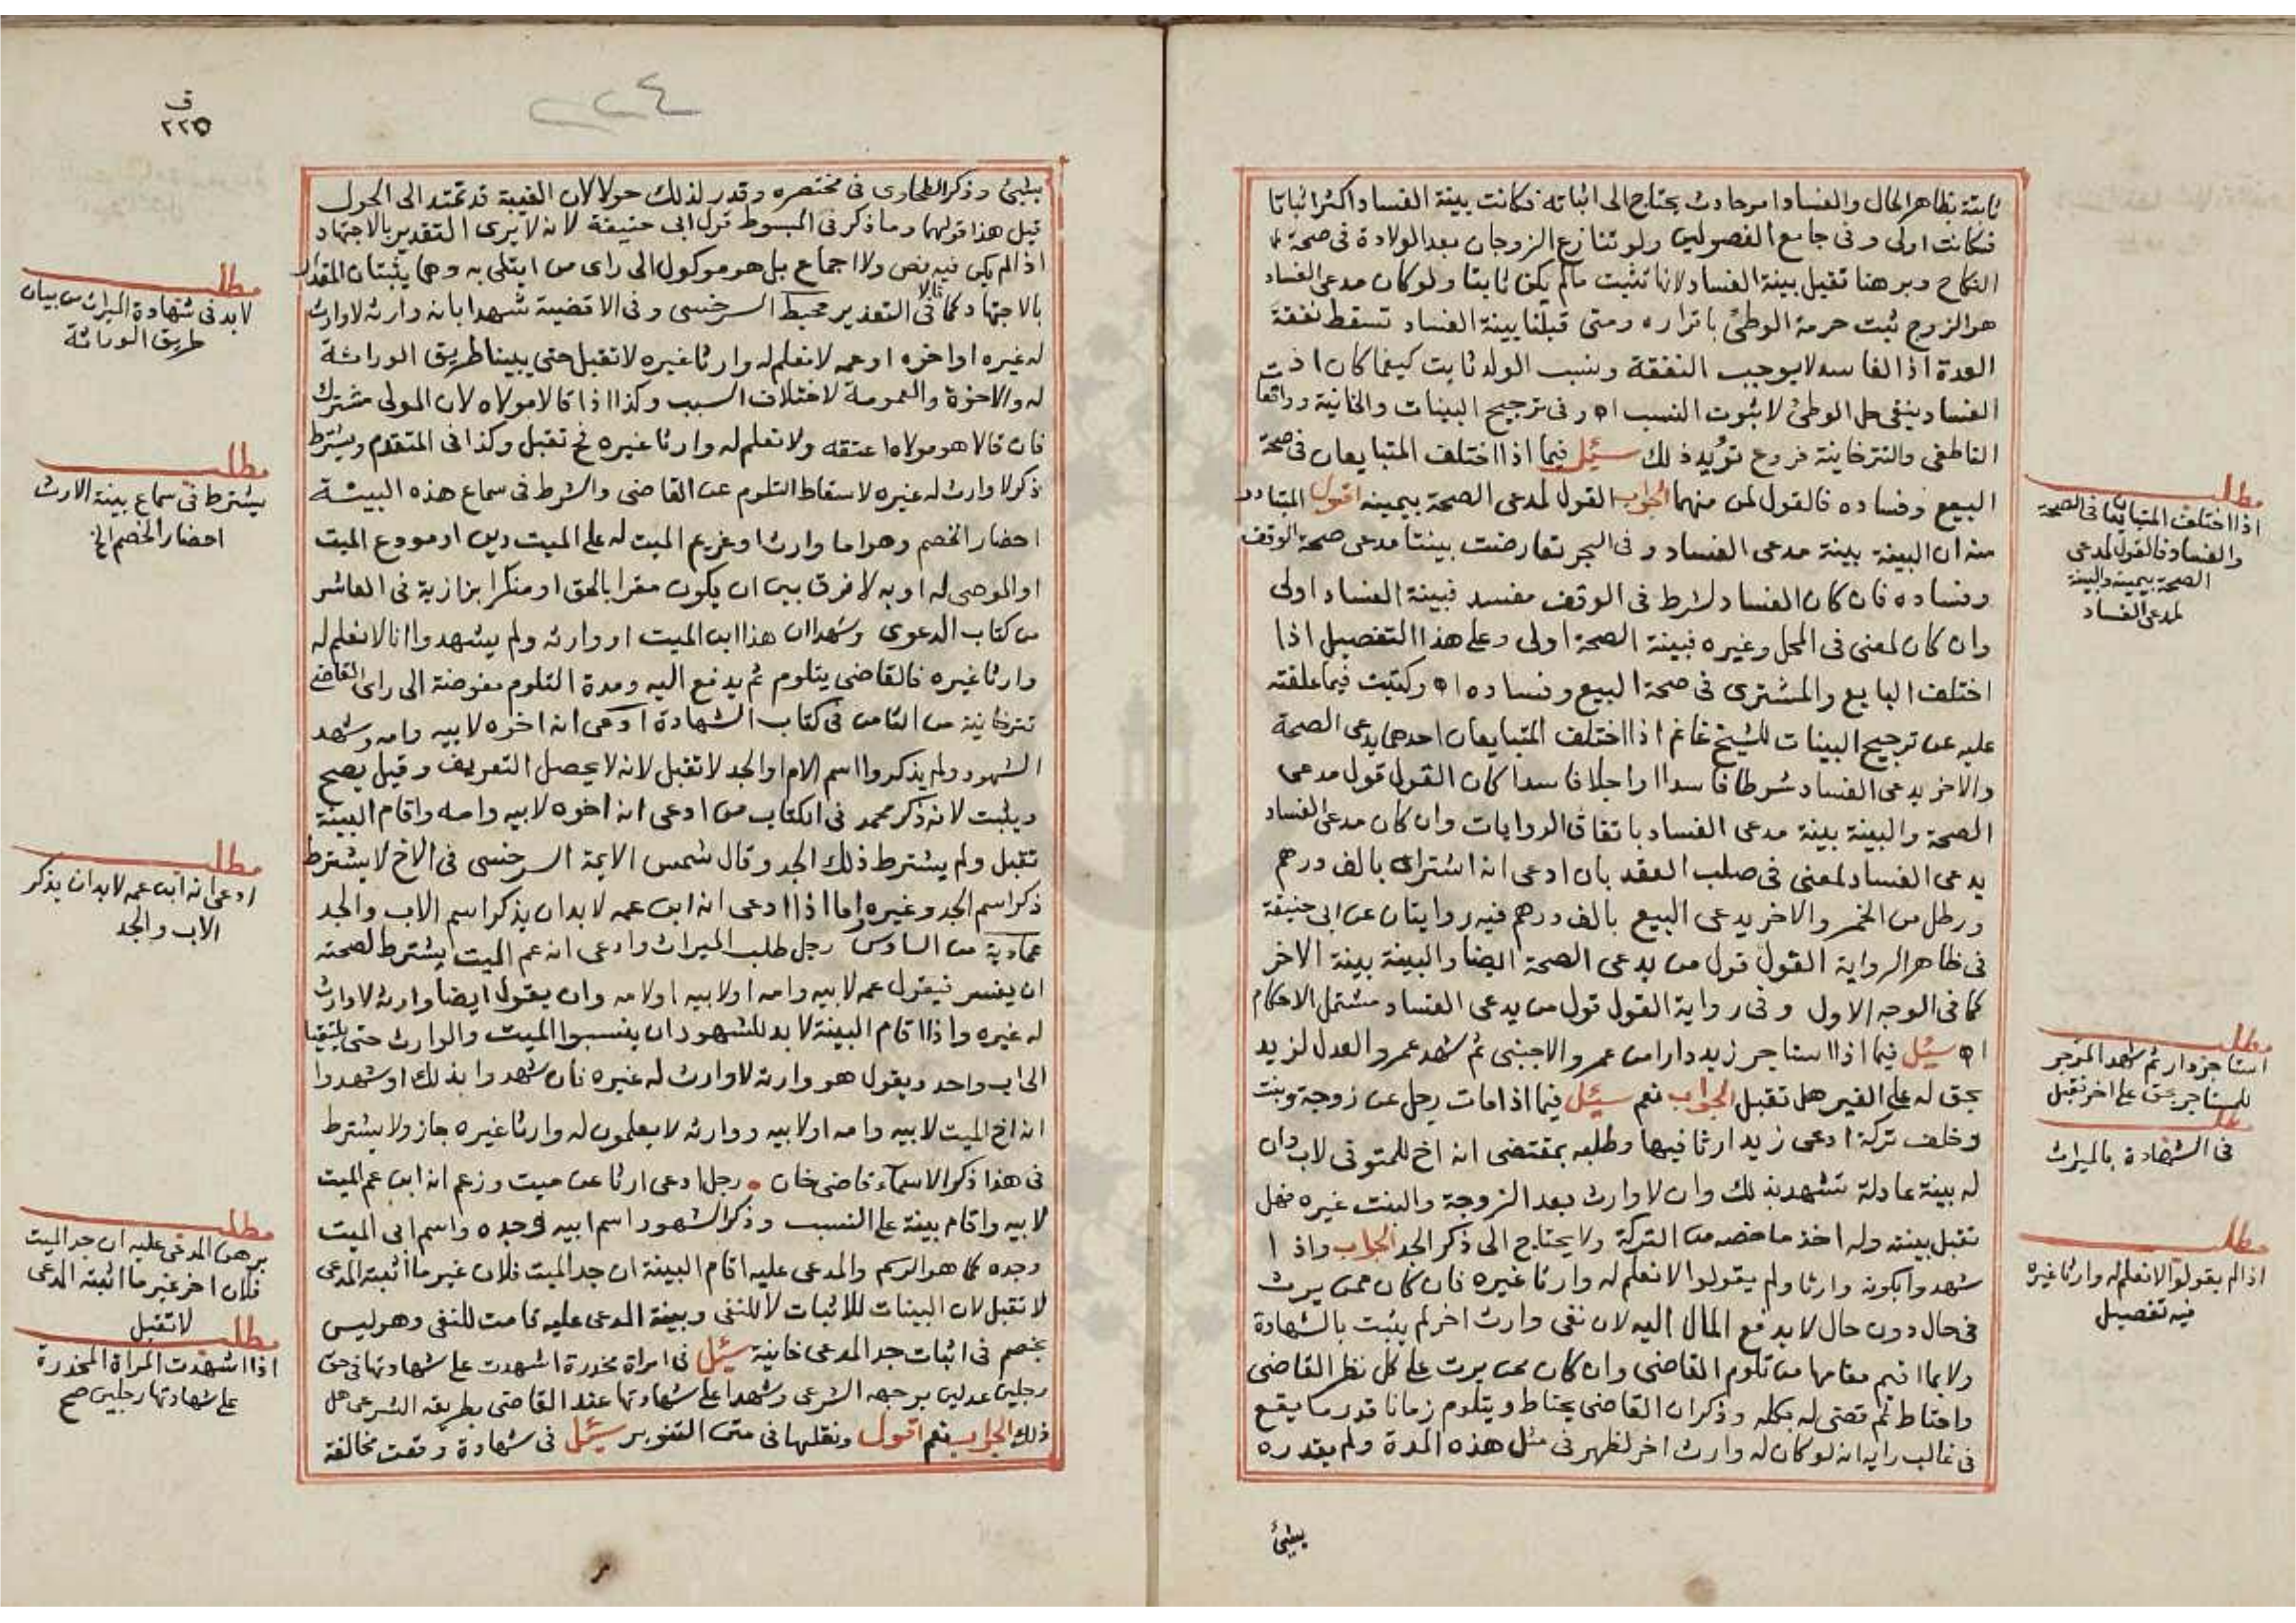 ثابتة بظاهر الحال والفساد امر حادث يحتاج الى اثباته فكانت بينة الفساد اكثر اثباتا
فكانت اولى وفى جامع الفصولين ولو تنازع الزوجان بعد الولادة فى صحة
النكاح وبرهنا تقبل بينة الفساد لانها تثبت مالم يكن ثابتا ولو كان مدعى الفساد
هو الزوج ثبت حرمة الوطئ باقراره ومتى قبلنا بينة الفساد تسقط نفقة
العدة اذ الفاسد لا يوجب النفقة ونسب الولد ثابت كيفما كان اذ
الفساد ينفى حل الوطئ لا ثبوت النسب اه وفى ترجيح البينات والخانية وواقعات
الناطفى والتترخانية فروع تؤيد ذلك سئل فيما اذا اختلف المتبايعان فى صحة
البيع وفساده فالقول لمن منهما الجواب القول لمدعى الصحة بيمينه اقول المتبادر
منه ان البينة بينة مدعى الفساد وفى البحر تعارضت بينتا مدعى صحة الوقف
وفساده فان كان الفساد لشرط فى الوقف مفسد فبينة الفساد اولى
وان كان لمعنى فى المحل وغيره فبينة الصحة اولى وعلى هذا التفصيل اذا
اختلف البايع والمشترى فى صحة البيع وفساده اه وكتبت فيما علقته
عليه عن ترجيح البينات للشيخ غانم اذا اختلف المتبايعان احدهما يدعى الصحة
والاخر يدعى الفساد شرطا فاسدا او اجلا فاسدا كان القول قول مدعى
الصحة والبينة بينة مدعى الفساد باتفاق الروايات وان كان مدعى الفساد
يدعى الفساد لمعنى فى صلب العقد بان ادعى انه اشتراه بالف درهم
ورطل من الخمر والاخر يدعى البيع بالف درهم فيه روايتان عن ابى حنيفة
فى ظاهر الرواية القول قول من يدعى الصحة ايضا والبينة بينة الاخر
كما فى الوجه الاول وفى رواية القول قول من يدعى الفساد مشتمل الاحكام
اه سئل فيما اذا استاجر زيد دارا من عمرو الاجنبى ثم شهد عمرو العدل لزيد
بحق له على الغير هل تقبل الجواب نعم سئل فيما اذا مات رجل عن زوجة وبنت
وخلف تركة ادعى زيد ارثا فيها وطلبه بمقتضى انه اخ للمتوفى لاب وان
له بينة عادلة تشهد بذلك وان لا وارث بعد الزوجة والبنت غيره فهل
تقبل بينته وله اخذ ما خصه من التركة ولا يحتاج الى ذكر الجد الجواب واذا
شهدوا بكونه وارثا ولم يقولوا لا نعلم له وارثا غيره فان كان ممن يرث
فى حال دون حال لا يدفع المال اليه لان نفى وارث اخر لم يثبت بالشهادة
ولا بما اقيم مقامها من تلوم القاضى وان كان ممن يرث على كل نظر القاضى
واحتاط ثم قضى له بكله وذكر ان القاضى يحتاط ويتلوم زمانا قدر ما يقع
فى غالب رايه انه لو كان له وارث اخر لظهر فى مثل هذه المدة ولم يقدره
بشئ
مطلب
اذا اختلف المتبايعان فى الصحة
والفساد فالقول لمدعى
الصحة بيمينه والبينة
لمدعى الفساد
مطلب
استاجر دار ثم شهد المؤجر
للمستاجر بحق على اخر تقبل
مطلب
فى الشهادة بالميراث
مطلب
اذا لم يقولوا لا نعلم له وارثا غيره
فيه تفصيل
ق
٢٢٥
٢٢٤
بشئ وذكر الطحاوى فى مختصره وقدر لذلك حولا لان الغيبة قد تمتد الى الحول
قيل هذا قولهما وما ذكر فى المبسوط قول ابى حنيفة لانه لا يرى التقدير بالاجتهاد
اذا لم يكن فيه نص ولا اجماع بل هو موكول الى راى من ابتلى به وهما يثبتان المقدار
بالاجتهاد كما قالا فى التعذير محيط السرخسى وفى الاقضية شهدا بانه وارثه لا وارث
له غيره او اخوه او عمه لا نعلم له وارثا غيره لا تقبل حتى يبينا طريق الوراثة
له والاخوة والعمومة لاختلاف السبب وكذا اذا قالا مولاه لان المولى مشترك
فان قالا هو مولاه اعتقه ولا نعلم له وارثا غيره ح تقبل وكذا فى المتقدم ويشترط
ذكر لا وارث له غيره لاسقاط التلوم عن القاضى والشرط فى سماع هذه البينة
احضار الخصم وهو اما وارث او غريم الميت له على الميت دين او مودع الميت
او الموصى له او به لا فرق بين ان يكون مقرا بالحق او منكرا بزازية فى العاشر
من كتاب الدعوى وشهد ان هذا ابن الميت او وارثه ولم يشهدوا انا لا نعلم له
وارثا غيره فالقاضى يتلوم ثم يدفع اليه ومدة التلوم مفوضة الى راى القاضى
تترخانية من الثامن فى كتاب الشهادة ادعى انه اخوه لابيه وامه وشهد
الشهود ولم يذكروا اسم الام او الجد لا تقبل لانه لا يحصل التعريف وقيل يصح
ويثبت لانه ذكر محمد فى الكتاب من ادعى انه اخوه لابيه وامه واقام البينة
تقبل ولم يشترط ذلك الجد وقال شمس الايمة السرخسى فى الاخ لا يشترط
ذكر اسم الجد وغيره واما اذا ادعى انه ابن عمه لا بد ان يذكر اسم الاب والجد
عمادية من السادس رجل طلب الميراث وادعى انه عم الميت يشترط لصحته
ان يفسر فيقول عمه لابيه وامه او لابيه او لامه وان يقول ايضا وارثه لا وارث
له غيره واذا اقام البينة لا بد للشهود ان ينسبوا الميت والوارث حتى يلتقيا
الى اب واحد ويقول هو وارثه لا وارث له غيره فان شهدوا بذلك او شهدوا
انه اخ الميت لابيه وامه او لابيه ووارثه لا يعلمون له وارثا غيره جاز ولا يشترط
فى هذا ذكر الاسماء قاضى خان • رجل ادعى ارثا عن ميت وزعم انه ابن عم الميت
لابيه واقام بينة على النسب وذكر الشهود اسم ابيه وجده واسم ابى الميت
وجده كما هو الرسم والمدعى عليه اقام البينة ان جد الميت فلان غير ما اثبته المدعى
لا تقبل لان البينات للاثبات لا للنفى وبينة المدعى عليه قامت للنفى وهو ليس
بخصم فى اثبات جد المدعى خانية سئل فى امراة مخدرة اشهدت على شهادتها فى حق
رجلين عدلين بوجهه الشرعى وشهدا على شهادتها عند القاضى بطريقه الشرعى هل
ذلك الجواب نعم اقول ونقلها فى متن التنوير سئل فى شهادة وقعت مخالفة
مطلب
لا بد فى شهادة الميراث من بيان
طريق الوراثة
مطلب
يشترط فى سماع بينة الارث
احضار الخصم الخ
مطلب
ادعى انه ابن عمه لا بد ان يذكر
الاب والجد
مطلب
برهن المدعى عليه ان جد الميت
فلان اخر غير ما اثبته المدعى
لا تقبل
مطلب
اذا اشهدت المراة المخدرة
على شهادتها رجلين صح